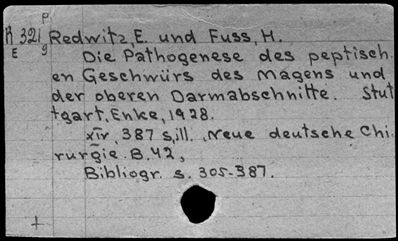 P
R 321 Redwitz E. und Fuss, H.
E 9
Die Pathogenese des peptisch
en Geschwürs des Magens und
der oberen Darmabschnitte. Stut
tgart, Enke, 1928.
xiv, 387 s, ill. Neue deutsche Chi
rurgie. B. 42,
Bibliogr. s. 305-387.